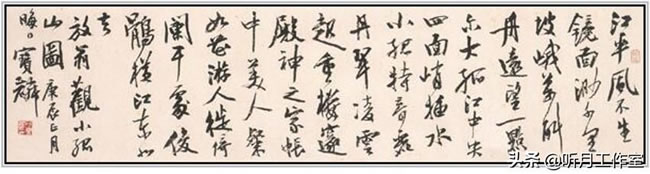 江平風不生
鏡面渺千里
峨萬斛
舟遠望一點
尓大孤江中央
四面峭插水
小孤特奇麗
丹翠凌雲
起重樓邃
殿神之家帳
中美人粲
如花游人徙倚
闌干處俊
鶻橫江東北
去
放翁觀小孤
山圖 庚辰正月
晦日 寶麟
头条 @听月工作室